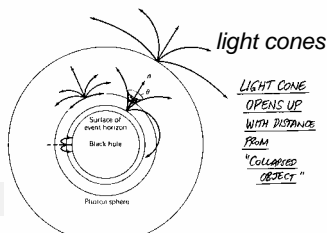 light cones
n
θ
LIGHT CONE
OPENS UP
WITH DISTANCE
FROM
"COLLAPSED
OBJECT"
Surface of
event horizon
Black hole
Photon sphere